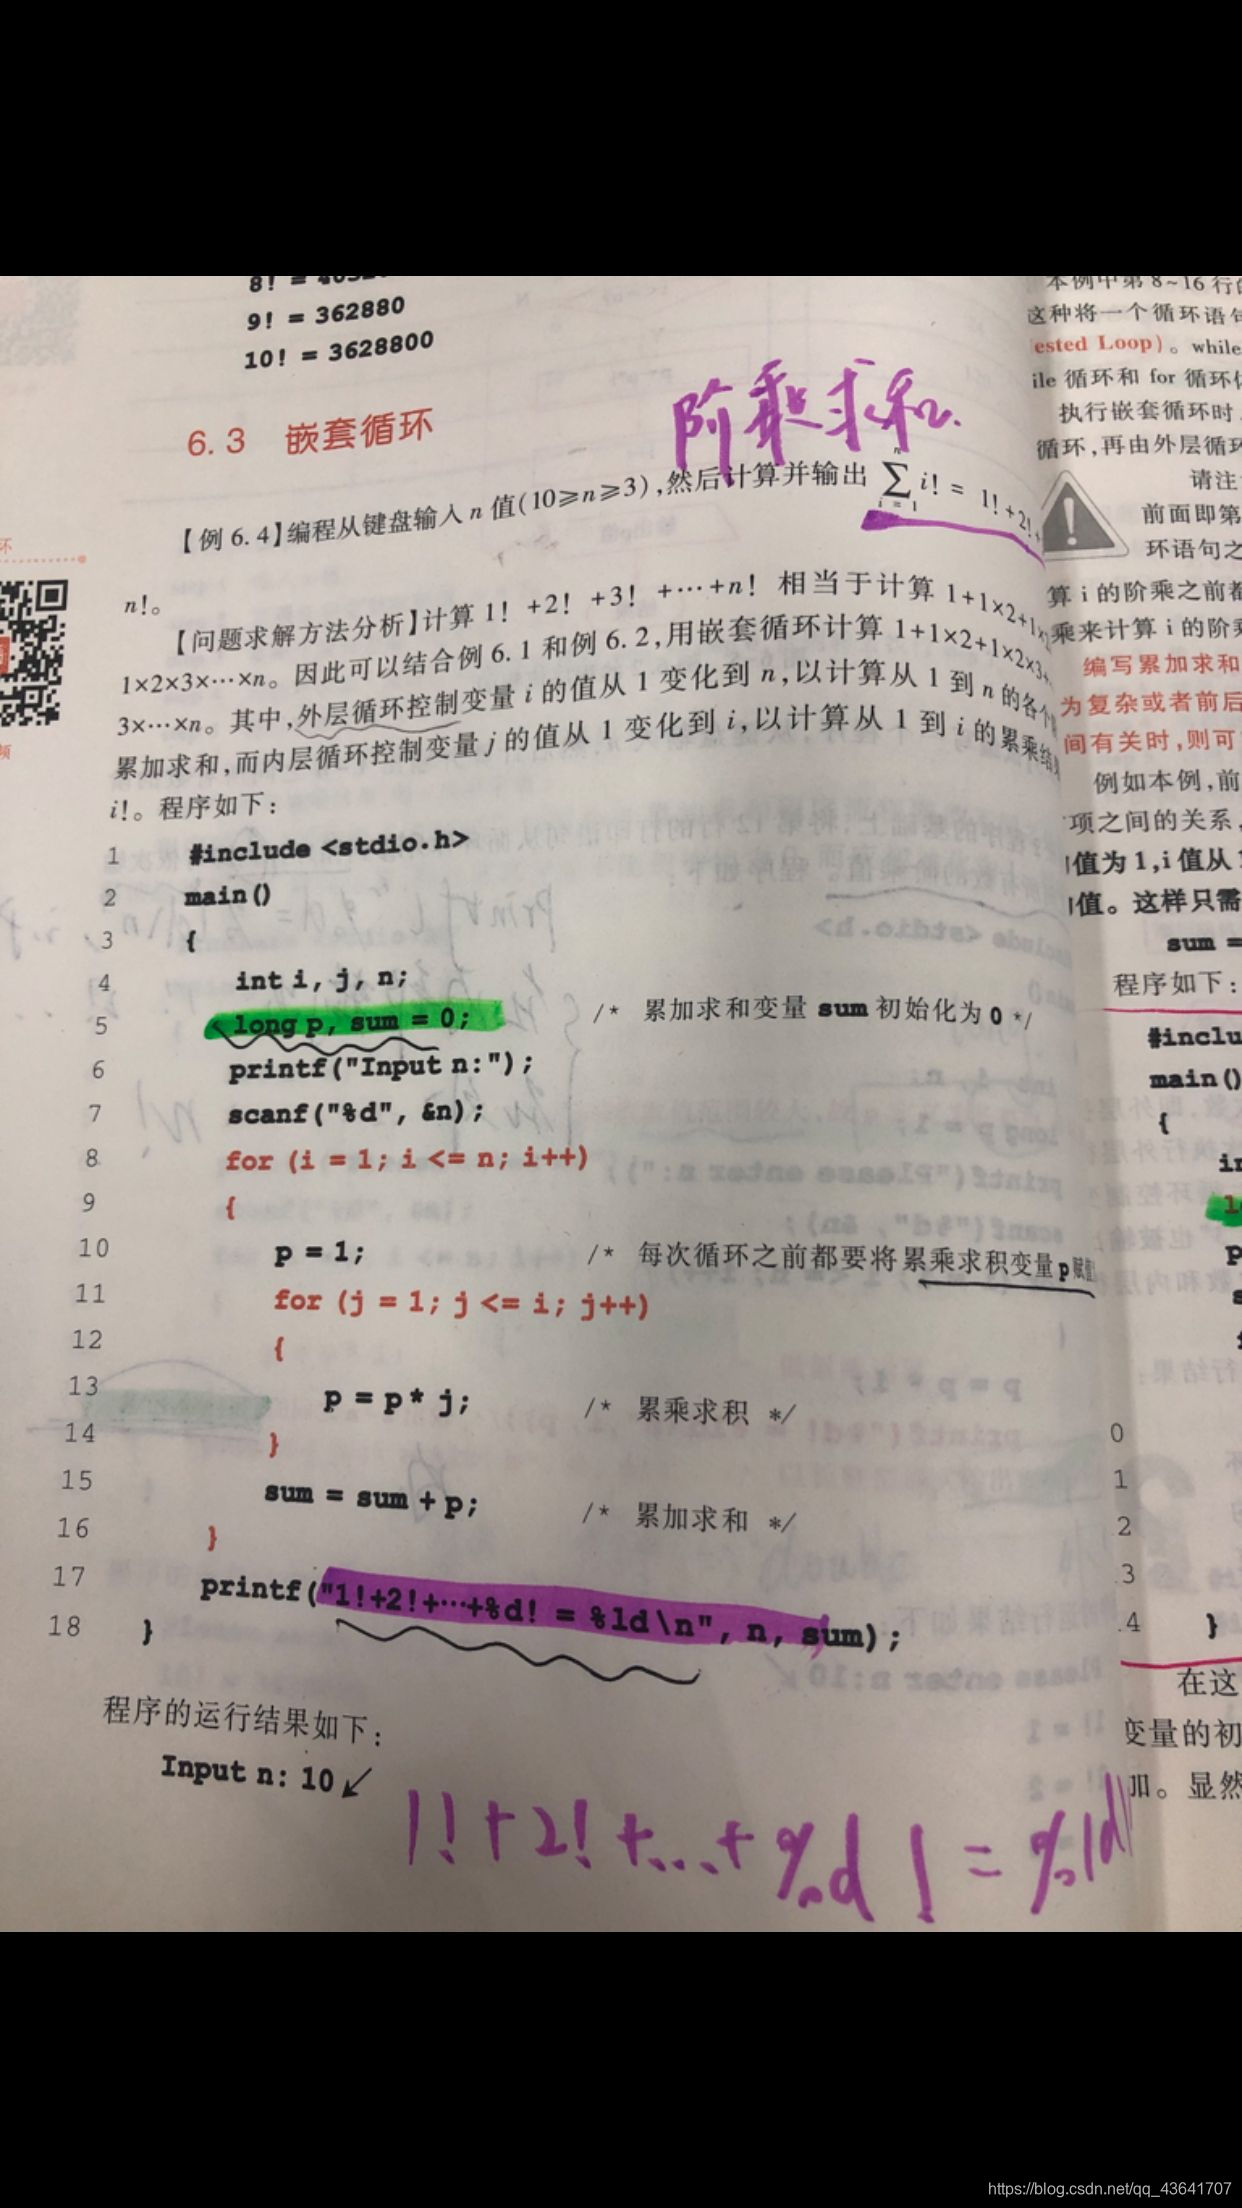 9! = 362880
10! = 3628800
阶乘求和.
6.3 嵌套循环
【例 6.4】编程从键盘输入 n 值(10≥n≥3),然后计算并输出 n ∑ i=1 i! = 1!+2!+
n!。
【问题求解方法分析】计算 1! +2! +3! +…+n! 相当于计算 1+1×2+1×2
1×2×3×…×n。因此可以结合例 6.1 和例 6.2,用嵌套循环计算 1+1×2+1×2×3+
3×…×n。其中,外层循环控制变量 i 的值从 1 变化到 n,以计算从 1 到 n 的各个
累加求和,而内层循环控制变量 j 的值从 1 变化到 i,以计算从 1 到 i 的累乘结
i!。程序如下:
1 #include <stdio.h>
2 main()
3 {
4 int i, j, n;
5 long p, sum = 0; /* 累加求和变量 sum 初始化为 0 */
6 printf("Input n:");
7 scanf("%d", &n);
8 for (i = 1; i <= n; i++)
9 {
10 p = 1; /* 每次循环之前都要将累乘求积变量 p 赋值
11 for (j = 1; j <= i; j++)
12 {
13 p = p * j; /* 累乘求积 */
14 }
15 sum = sum + p; /* 累加求和 */
16 }
17 printf("1!+2!+…+%d! = %ld\n", n, sum);
18 }
程序的运行结果如下:
Input n: 10↙
1!+2!+...+%d!=%ld
本例中第 8~16 行
这种将一个循环语句
ested Loop)。while
ile 循环和 for 循环
执行嵌套循环时
循环,再由外层循环
请注
前面即第
环语句之
算 i 的阶乘之前都
乘来计算 i 的阶乘
编写累加求和
为复杂或者前后
间有关时,则可
例如本例,前
项之间的关系,
值为 1,i 值从
值。这样只需
sum =
程序如下:
#inclu
main()
{
in
p
0
1
2
3
4 }
在这
变量的初
加。显然
https://blog.csdn.net/qq_43641707